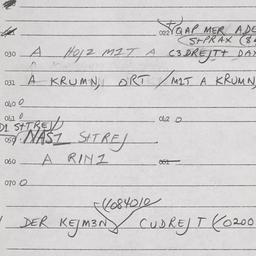 022 YGAP MER ADE
S+PRAX (8
030 A HOJ2 M1T A C3DREJT+ DAY
031 A KRUMN, ORT /M1T A KRUMN,
040 0
041 0 042 0
D1 S+TREJ/
050 NAS1 S+TREJ
060 A RIN1 061
070 0
(/084010
DER KEJM3N CUDREJT (/0200